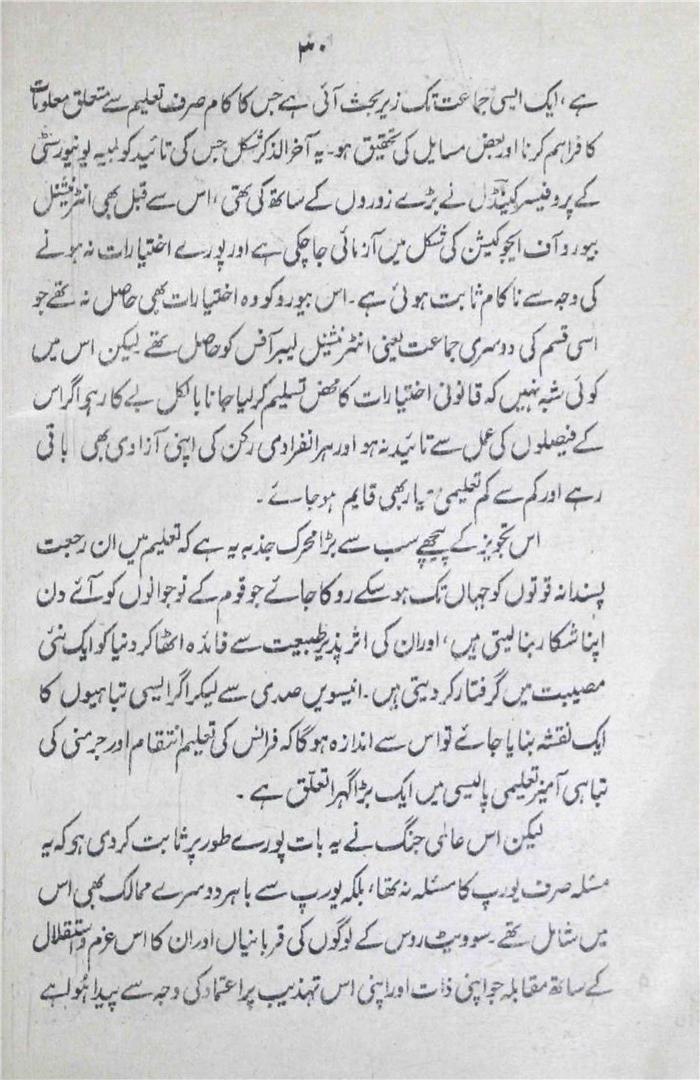 ۳۰
ہے، ایک ایسی جماعت تک زیر بحث آئی ہے جس کا کام صرف تعلیم سے متعلق معلومات
کا فراہم کرنا اور بعض مسایل کی تحقیق ہو۔ یہ آخر الذکر شکل جس کی تائید کولمبیہ یونیورسٹی
کے پروفیسر کینڈل نے بڑے زوروں کے ساتھ کی تھی، اس سے قبل بھی انٹرنیشنل
بیورو آف ایجوکیشن کی شکل میں آزمائی جا چکی ہے اور پورے اختیارات نہ ہونے
کی وجہ سے ناکام ثابت ہوئی ہے۔ اس بیورو کو وہ اختیارات بھی حاصل نہ تھے جو
اسی قسم کی دوسری جماعت یعنی انٹرنیشنل لیبر آفس کو حاصل تھے لیکن اس میں
کوئی شبہ نہیں کہ قانونی اختیارات کا محض تسلیم کر لیا جانا بالکل بے کار ہے اگر اس
کے فیصلوں کی عمل سے تائید نہ ہو اور ہر انفرادی رکن کی اپنی آزادی بھی باقی
رہے اور کم سے کم تعلیمی معیار بھی قایم ہو جائے۔
اس تجویز کے پیچھے سب سے بڑا محرک جذبہ یہ ہے کہ تعلیم میں ان رجعت
پسندانہ قوتوں کو جہاں تک ہو سکے روکا جائے جو قوم کے نوجوانوں کو آئے دن
اپنا شکار بنا لیتی ہیں، اور ان کی اثر پذیر طبیعت سے فائدہ اٹھا کر دنیا کو ایک نئی
مصیبت میں گرفتار کر دیتی ہیں۔ انیسویں صدی سے لیکر اگر ایسی تباہیوں کا
ایک نقشہ بنایا جائے تو اس سے اندازہ ہوگا کہ فرانس کی تعلیم انتقام اور جرمنی کی
تباہی آمیز تعلیمی پالیسی میں ایک بڑا گہرا تعلق ہے۔
لیکن اس عالمی جنگ نے یہ بات پورے طور پر ثابت کر دی ہو کہ یہ
مسئلہ صرف یورپ کا مسئلہ نہ تھا، بلکہ یورپ سے باہر دوسرے ممالک بھی اس
میں شامل تھے۔ سوویٹ روس کے لوگوں کی قربانیاں اور ان کا اس عزم و استقلال
کے ساتھ مقابلہ جو اپنی ذات اور اپنی اس تہذیب پر اعتماد کی وجہ سے پیدا ہوا ہے